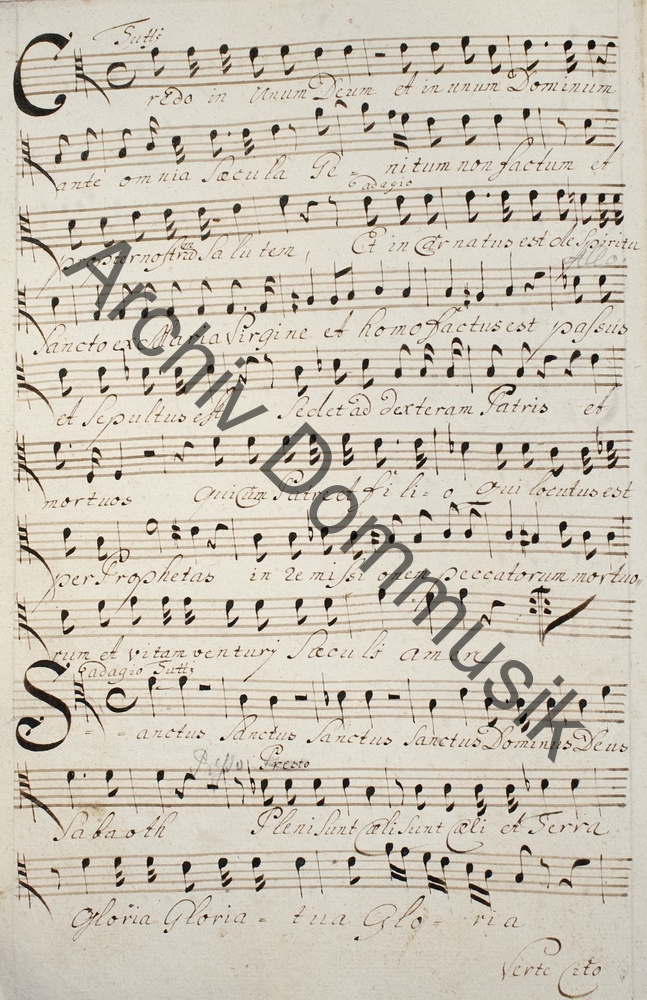 Tutti
Credo in Unum Deum et in unum Dominum
ante omnia Sæcula Ge - nitum non factum et
adagio
propter nostram Salutem, Et in Carnatus est de Spiritu
Allo.
Sancto ex Maria Virgine et homo factus est passus
et Sepultus est Sedet ad dexteram Patris et
mortuos qui cum Patre et fili - o qui locutus est
per Prophetas in remissi onem peccatorum mortuo,
rum et vitam venturj Sæculi amen
adagio Tutti
S - - anctus Sanctus Sanctus Sanctus Dominus Deus
Presto Presto
Sabaoth Pleni Sunt Cæli Sunt Cæli et Terra
Gloria Gloria - tua Glo - ria
Verte Cito
Archiv Dommusik